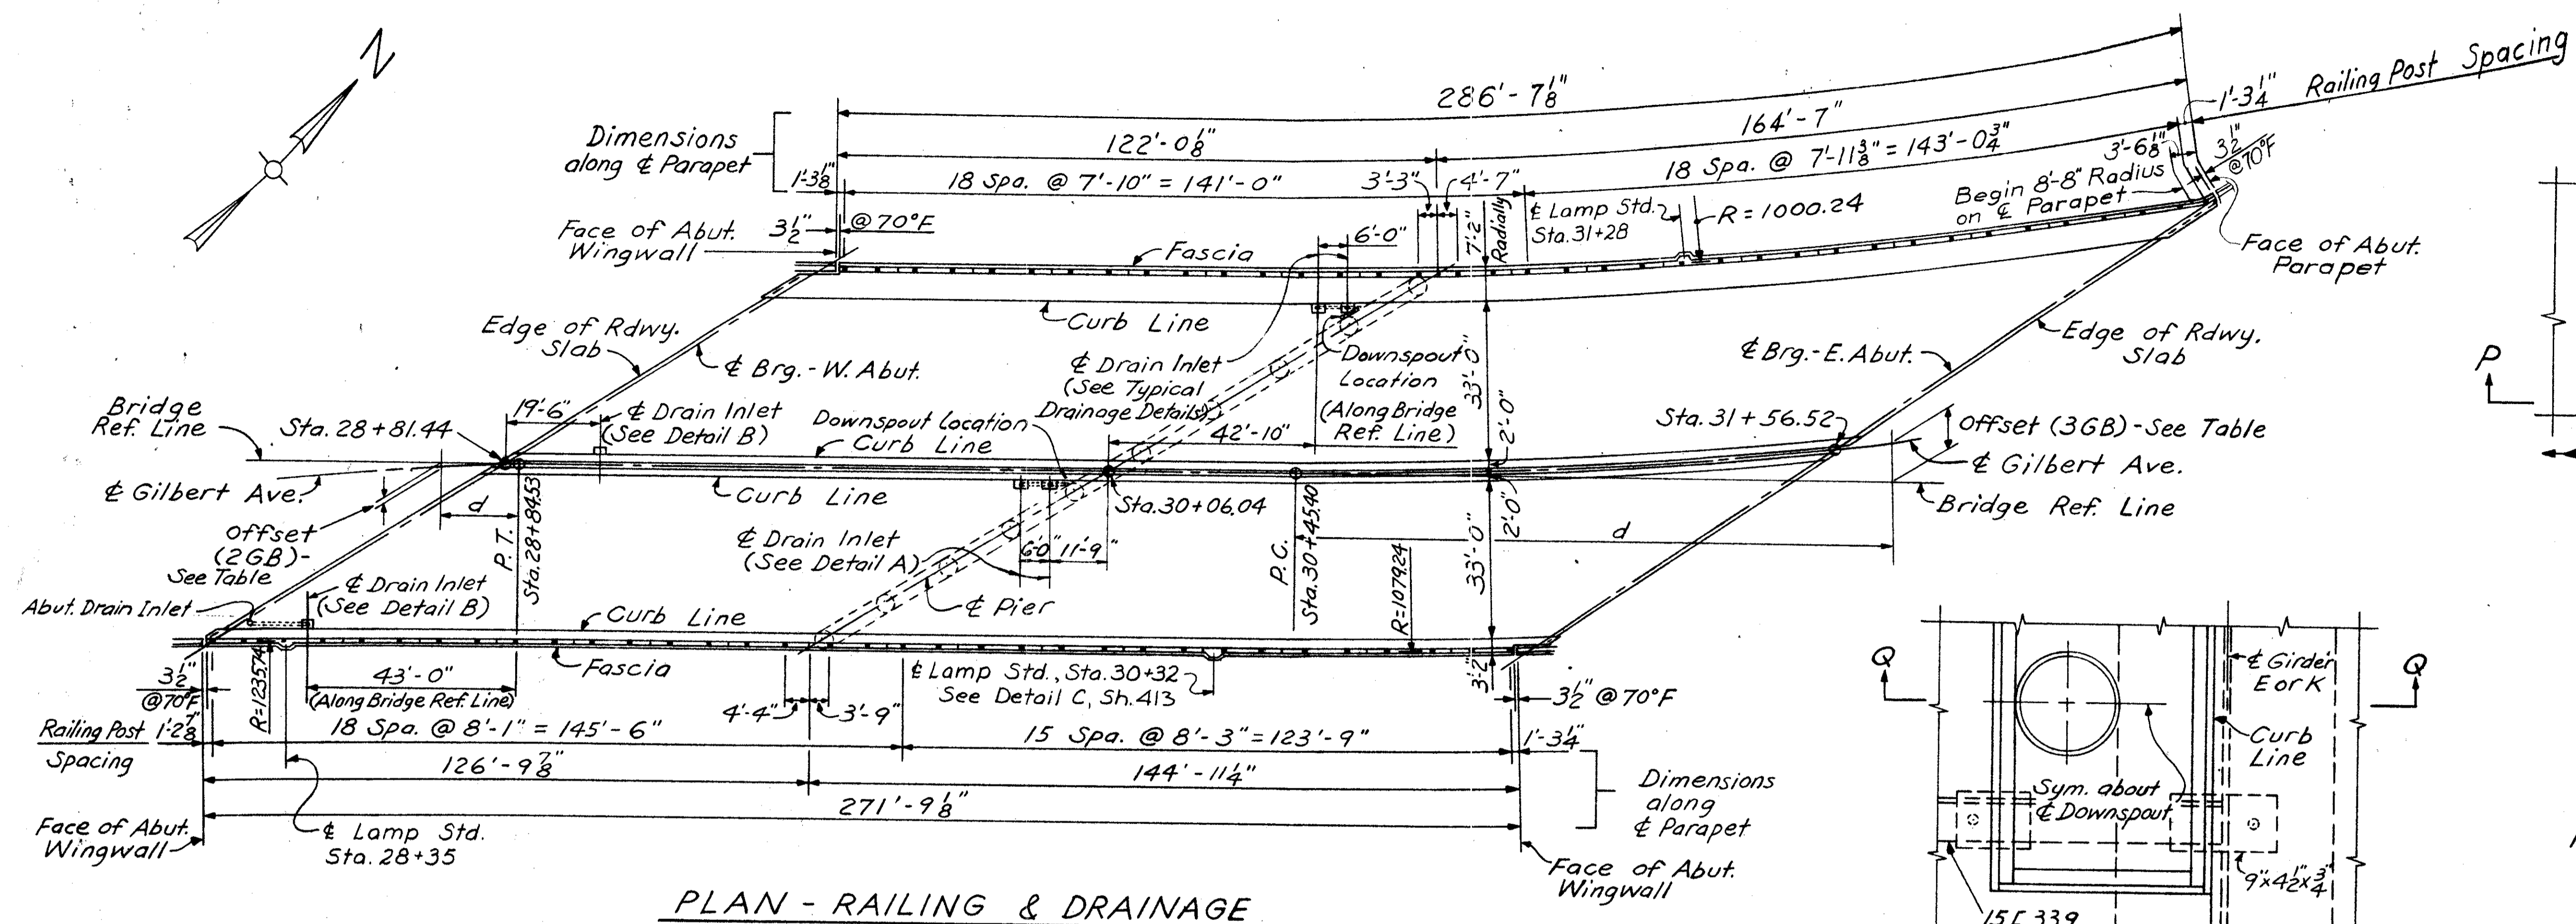 N
286'- 7 1/8"
1'-3 1/4" Railing Post Spacing
Dimensions
along ℄ Parapet
122'-0 1/8"
164'-7"
1'-3 3/8"
18 Spa. @ 7'-10" = 141'-0"
3'-3"
4'-7"
18 Spa. @ 7'-11 3/8" = 143'-0 3/4"
3'-6 1/8"
3 1/2"
@70°F
Begin 8'-8" Radius
on ℄ Parapet
Face of Abut.
Wingwall
3 1/2"
@70°F
Fascia
6'-0"
7'-2"
Radially
℄ Lamp Std.
Sta.31+28
R=1000.24
Face of Abut.
Parapet
Curb Line
Edge of Rdwy.
Slab
℄ Brg.-W. Abut.
℄ Drain Inlet
(See Typical
Drainage Details)
Downspout
Location
(Along Bridge
Ref. Line)
33'-0"
℄ Brg.-E. Abut.
Edge of Rdwy.
Slab
P
Bridge
Ref. Line
Sta. 28+81.44
19'-6"
℄ Drain Inlet
(See Detail B)
Downspout Location
Curb Line
42'-10"
2'-0"
Sta.31+56.52
Offset (3GB)-See Table
℄ Gilbert Ave.
Bridge Ref. Line
℄ Gilbert Ave.
Curb Line
Sta.30+06.04
2'-0"
d
d
Offset
(2GB)-
See Table
P.T.
Sta.28+84.53
℄ Drain Inlet
(See Detail A)
6'-0"
11'-9"
P.C.
Sta.30+45.40
R=1079.24
33'-0"
Abut. Drain Inlet
℄ Drain Inlet
(See Detail B)
Curb Line
℄ Pier
Fascia
3 1/2"
@70°F
R=1235.74
43'-0"
(Along Bridge Ref. Line)
℄ Lamp Std., Sta.30+32
See Detail C, Sh.413
3'-2"
3 1/2" @ 70°F
4'-4"
3'-9"
Railing Post
Spacing
1'-2 7/8"
18 Spa. @ 8'-1" = 145'-6"
15 Spa. @ 8'-3"=123'-9"
1'-3 1/4"
126'-9 7/8"
144'-11 1/4"
271'-9 1/8"
Dimensions
along
℄ Parapet
Face of Abut.
Wingwall
℄ Lamp Std.
Sta. 28+35
Face of Abut.
Wingwall
PLAN - RAILING & DRAINAGE
Q
Q
℄ Girder
E or K
Curb
Line
Sym. about
℄ Downspout
9"x4 1/2"x3/4"
15[33.9